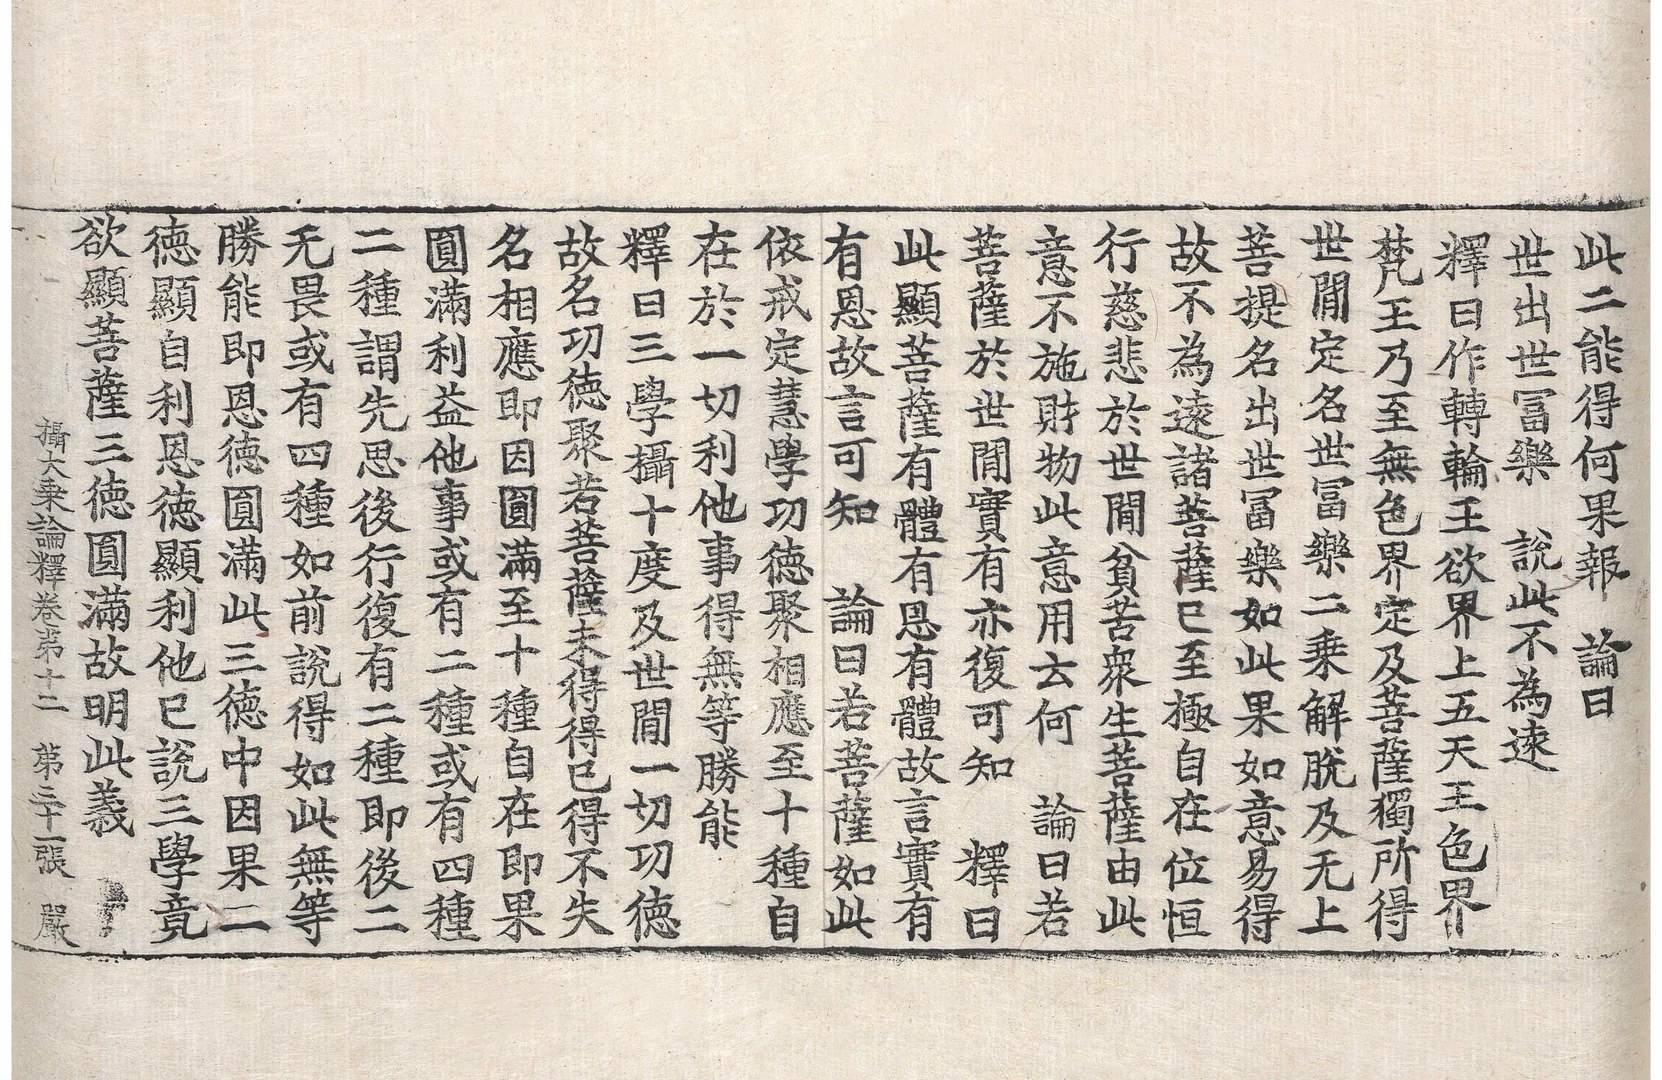 此二能得何果報　論曰
世出世冨樂　說此不為遠
釋曰作轉輪王欲界上五天王色界
梵王乃至無色界定及菩薩獨所得
世閒定名世冨樂二乗解脫及无上
菩提名出世冨樂如此果如意易得
故不為遠諸菩薩已至極自在位恒
行慈悲於世閒貧苦衆生菩薩由此
意不施財物此意用去何　論曰若
菩薩於世閒實有亦復可知　釋曰
此顯菩薩有體有恩有體故言實有
有恩故言可知　論曰若菩薩如此
依戒定慧學功德聚相應至十種自
在於一切利他事得無等勝能
釋曰三學攝十度及世閒一切功德
故名功德聚若菩薩未得得已得不失
名相應即因圓滿至十種自在即果
圓滿利益他事或有二種或有四種
二種謂先思後行復有二種即後二
无畏或有四種如前說得如此無等
勝能即恩德圓滿此三德中因果二
德顯自利恩德顯利他已說三學竟
欲顯菩薩三德圓滿故明此義
攝大乗論釋卷苐十二　第三十一張　嚴